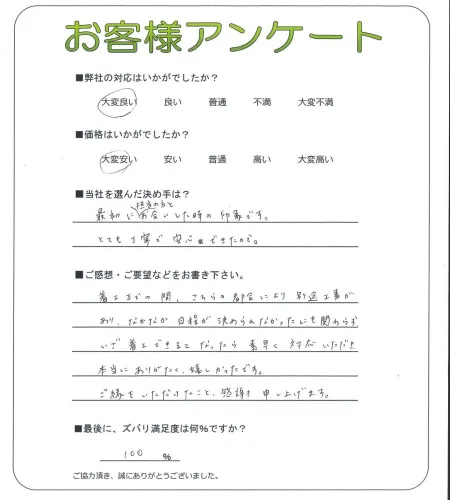 お客様アンケート
■弊社の対応はいかがでしたか？
大変良い 良い 普通 不満 大変不満
■価格はいかがでしたか？
大変安い 安い 普通 高い 大変高い
■当社を選んだ決め手は？
担当の方と
最初にお会いした時の印象です。
とても丁寧で安心できたので。
■ご感想・ご要望などをお書き下さい。
着工までの間、こちらの都合により別途工事が
あり、なかなか日程が決められなかったにも関わらず
いざ着工できるとなったら素早く対応いただき
本当にありがたく、嬉しかったです。
ご縁をいただけたこと、感謝申し上げます。
■最後に、ズバリ満足度は何%ですか？
100 %
ご協力頂き、誠にありがとうございました。